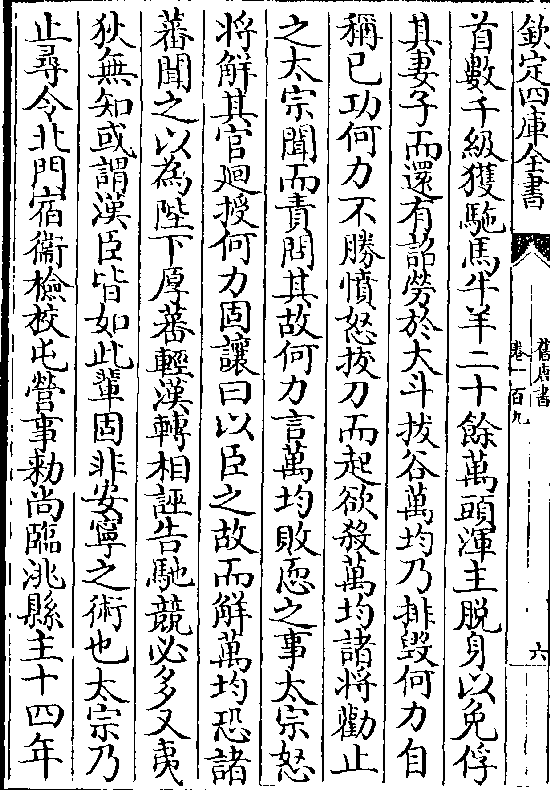 欽定四庫全書
舊唐書
卷一百九
六
首數千級獲駞馬牛羊二十餘萬頭渾主脱身以免俘
其妻子而還有詔勞於大斗拔谷萬均乃排毀何力自
稱已功何力不勝憤怒挍刀而起欲殺萬均諸將勸止
之太宗聞而責問其故何力言萬均敗恧之事太宗怒
將解其官廻授何力固讓曰以臣之故而解萬均恐諸
蕃聞之以為陛下厚蕃輕漢轉相誣告馳競必多又夷
狄無知或謂漢臣皆如此輩固非安寧之術也太宗乃
止尋令北門宿衛檢校屯營事勅尚臨洮縣主十四年